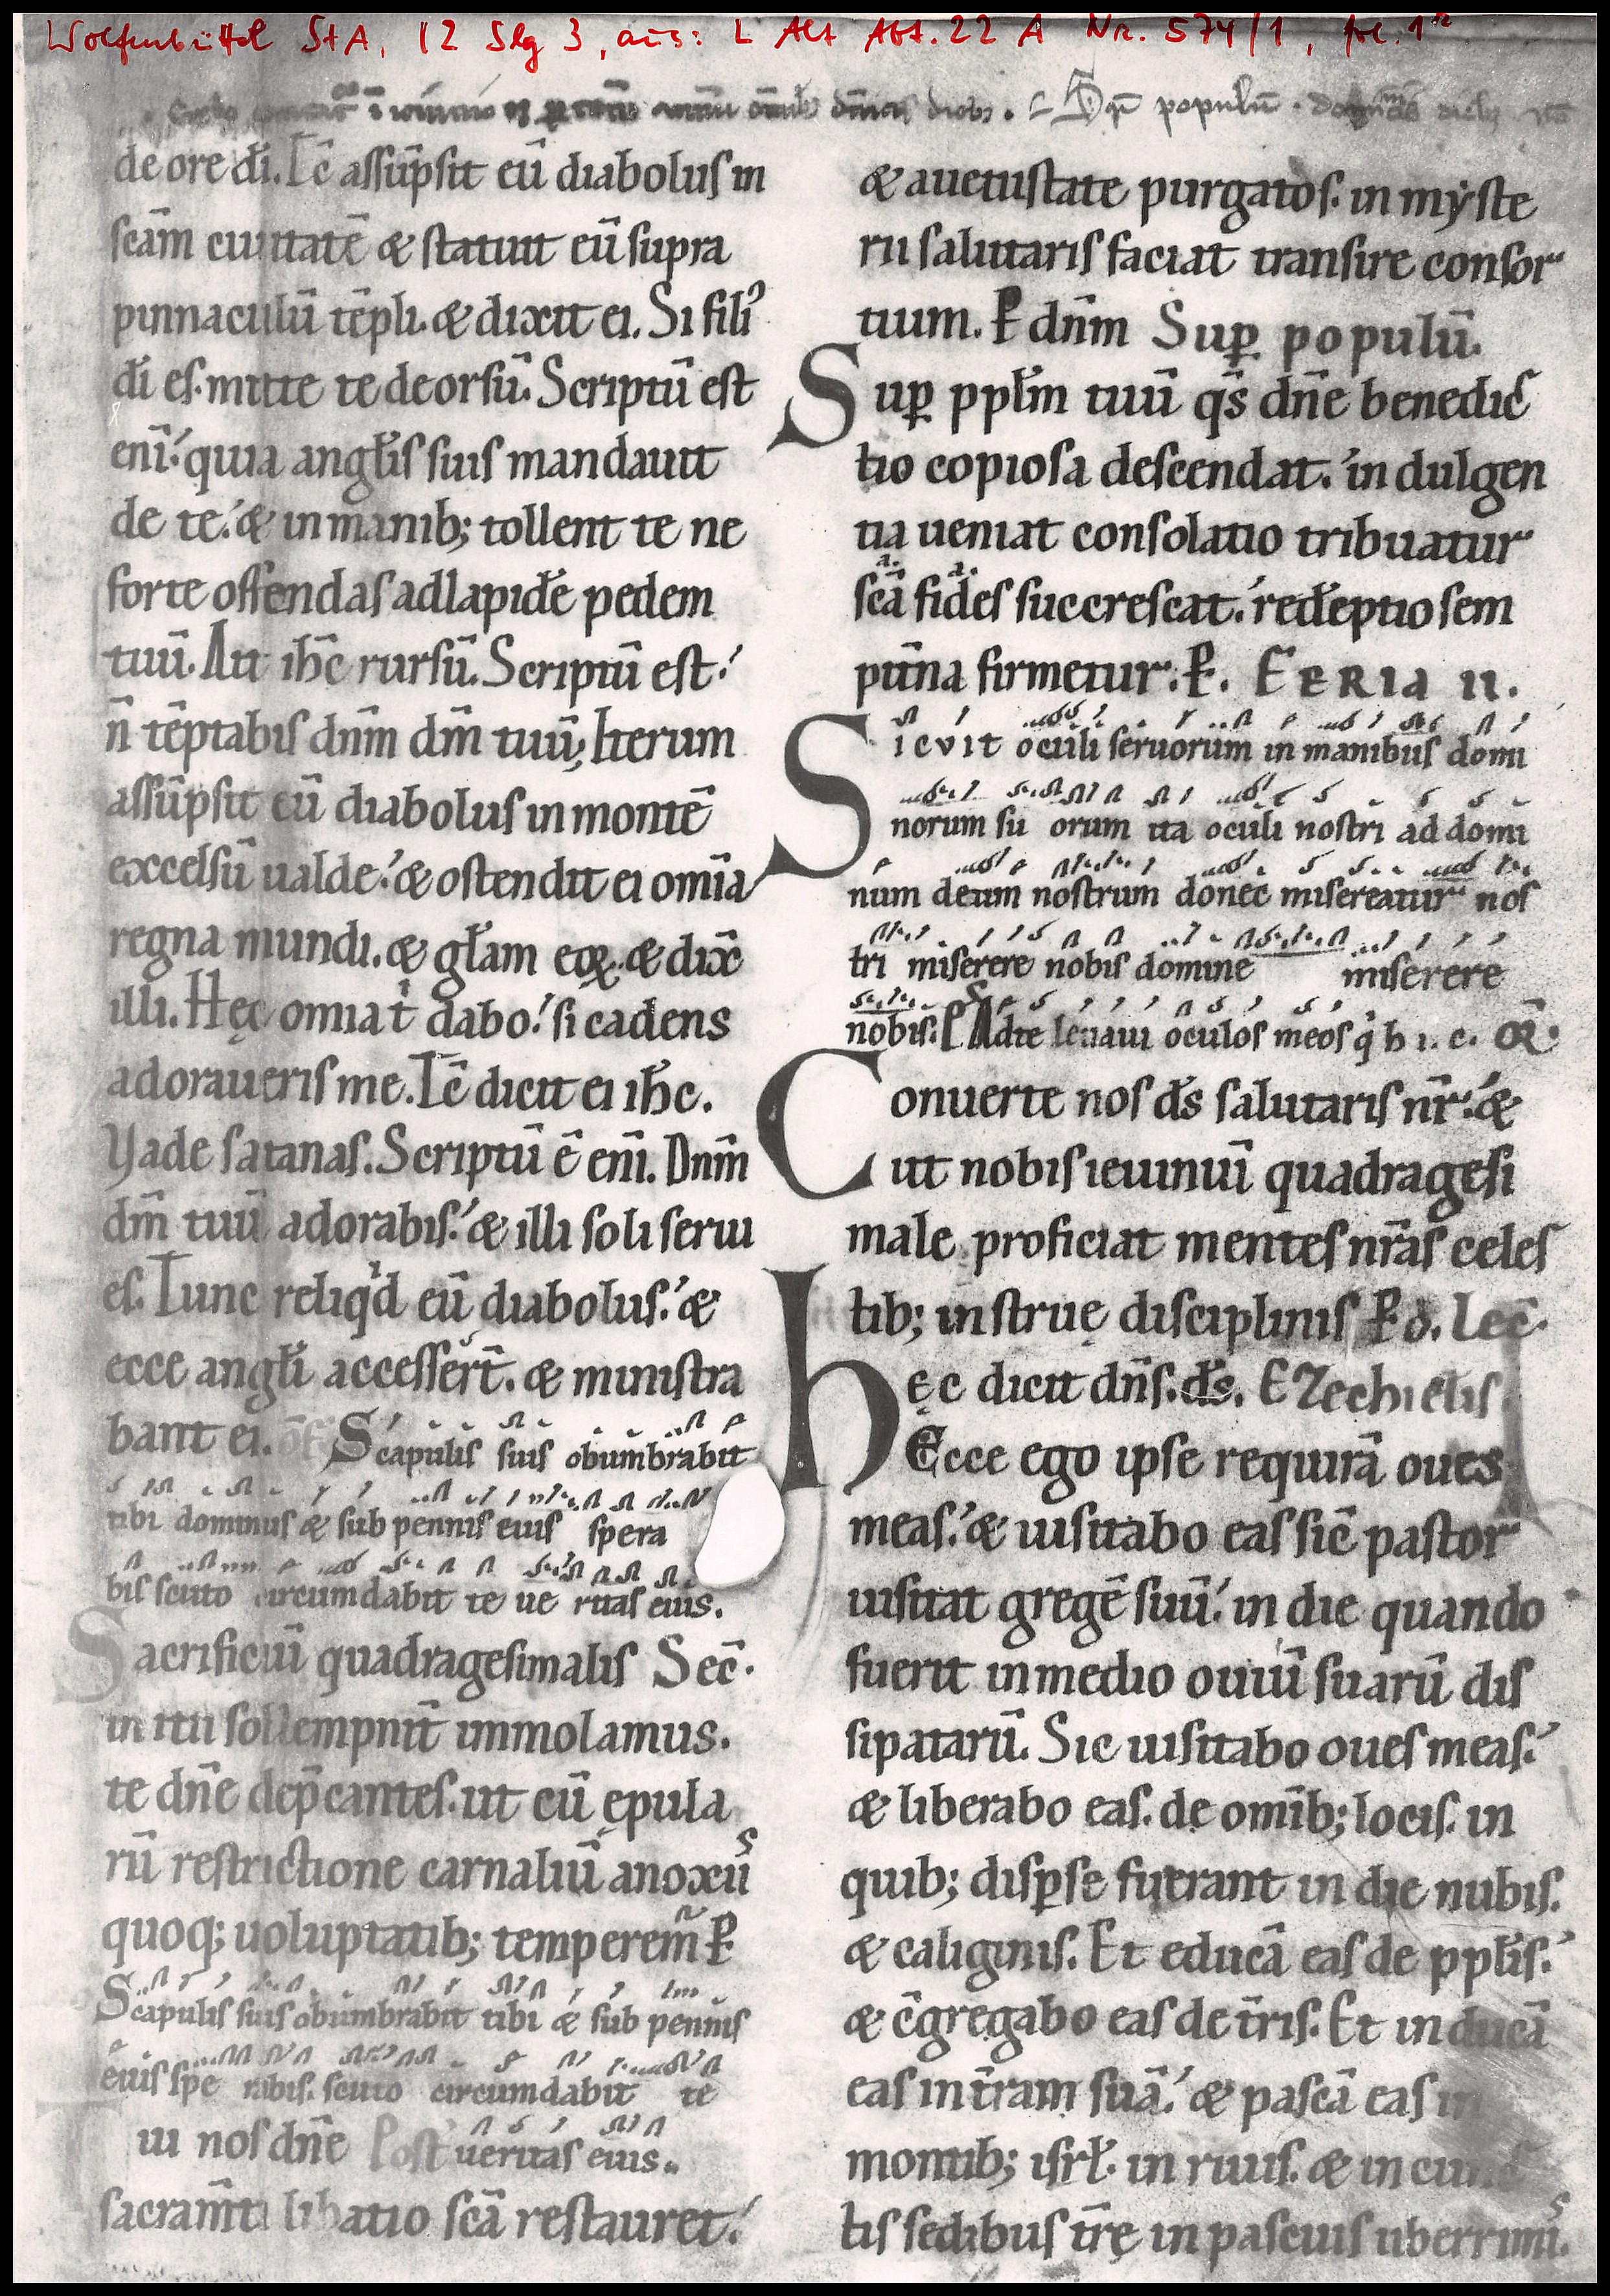 Wolfenbüttel StA, 12 Slg 3, aus: L Alt Abt. 22 A Nr. 574/1, fol. 1r
dn̄icis diebꝫ. Sup̲ populū.
de ore dī. Tc̄ assūpsit eū diabolus in
scām ciuitatē & statuit eū supra
pinnaculū tēpli. & dixit ei. Si filiꝰ
dī es. mitte te deorsū. Scriptū est
eni̅: quia angłis suis mandauit
de te: & in manib; tollent te ne
forte offendas ad lapidē pedem
tuū. Ait ihc̄ rursū. Scriptū est:
n̄ tēptabis dn̄m dm̄ tuū; Iterum
assūpsit eū diabolus in montē
excelsū ualde: & ostendit ei omīa
regna mundi. & głam eoꝝ. & dix̄
illi. Hęc omia t̓ dabo: si cadens
adoraueris me. Tc̄ dicit ei ihc̄.
Vade satanas. Scriptū ē eni̅. Dn̄m
dm̄ tuū adorabis: & illi soli serui
es. Tunc reliq̓d eū diabolus: &
ecce angłi accesser̄t. & ministra
bant ei. of̄ Scapulis suis obumbrabit
tibi dominus & sub pennis eius spera
bis scuto circumdabit te ueritas eius.
Sacrificiū quadragesimalis Sec̄.
initii sollempnit̄ immolamus.
te dn̄e dep̄cantes. ut cū ępula
rū restrictione carnaliū a noxiis
quoq; uoluptatib; temperem̄ P̲
Scapulis suis obumbrabit tibi & sub pennis
eius spe rabis. scuto circumdabit te
Tui nos dn̄e Post ueritas eius.
sacram̄ti libatio scā restauret:
& a uetustate purgatos. in myste
rii salutaris faciat transire consor
tium. P̲ dn̄m Sup̲ populū.
Sup̲ ppłm tuū qs̄ dn̄e benedic̄
tio copiosa descendat: indulgen
tia ueniat consolatio tribuatur
scā fides succrescat: redēptio sem
pit̄na firmetur: P̲. FERIA II.
Sicvit oculi seruorum in manibus domi
norum su orum ita oculi nostri ad domi
num deum nostrum donec misereatur nos
tri miserere nobis domine miserere
nobis. Ps Ad te leuaui oculos meos q̓ h i. c. OR̄.
Conuerte nos ds̄ salutaris nr̄: &
ut nobis ieiuniū quadragesi
male proficiat mentes nr̄as celes
tib; instrue disciplinis P̲ d. Lec̄.
hęc dicit dn̄s. ds̄. Ezechielis
Ecce ego ipse requirā oues
meas: & uisitabo eas sic̄ pastor
uisitat gregē suū: in die quando
fuerit in medio ouiū suarū dis
sipatarū. Sic uisitabo oues meas:
& liberabo eas. de omīb; locis. in
quib; disp̲se fuerant in die nubis.
& caliginis. Et educā eas de ppłis:
& c̄gregabo eas de tr̄is. Et inducā
eas in tr̄am suā: & pascā eas in
montib; isrł. in riuis. & in cunc
tis sedibus tr̄ę in pascuis uberrimis.